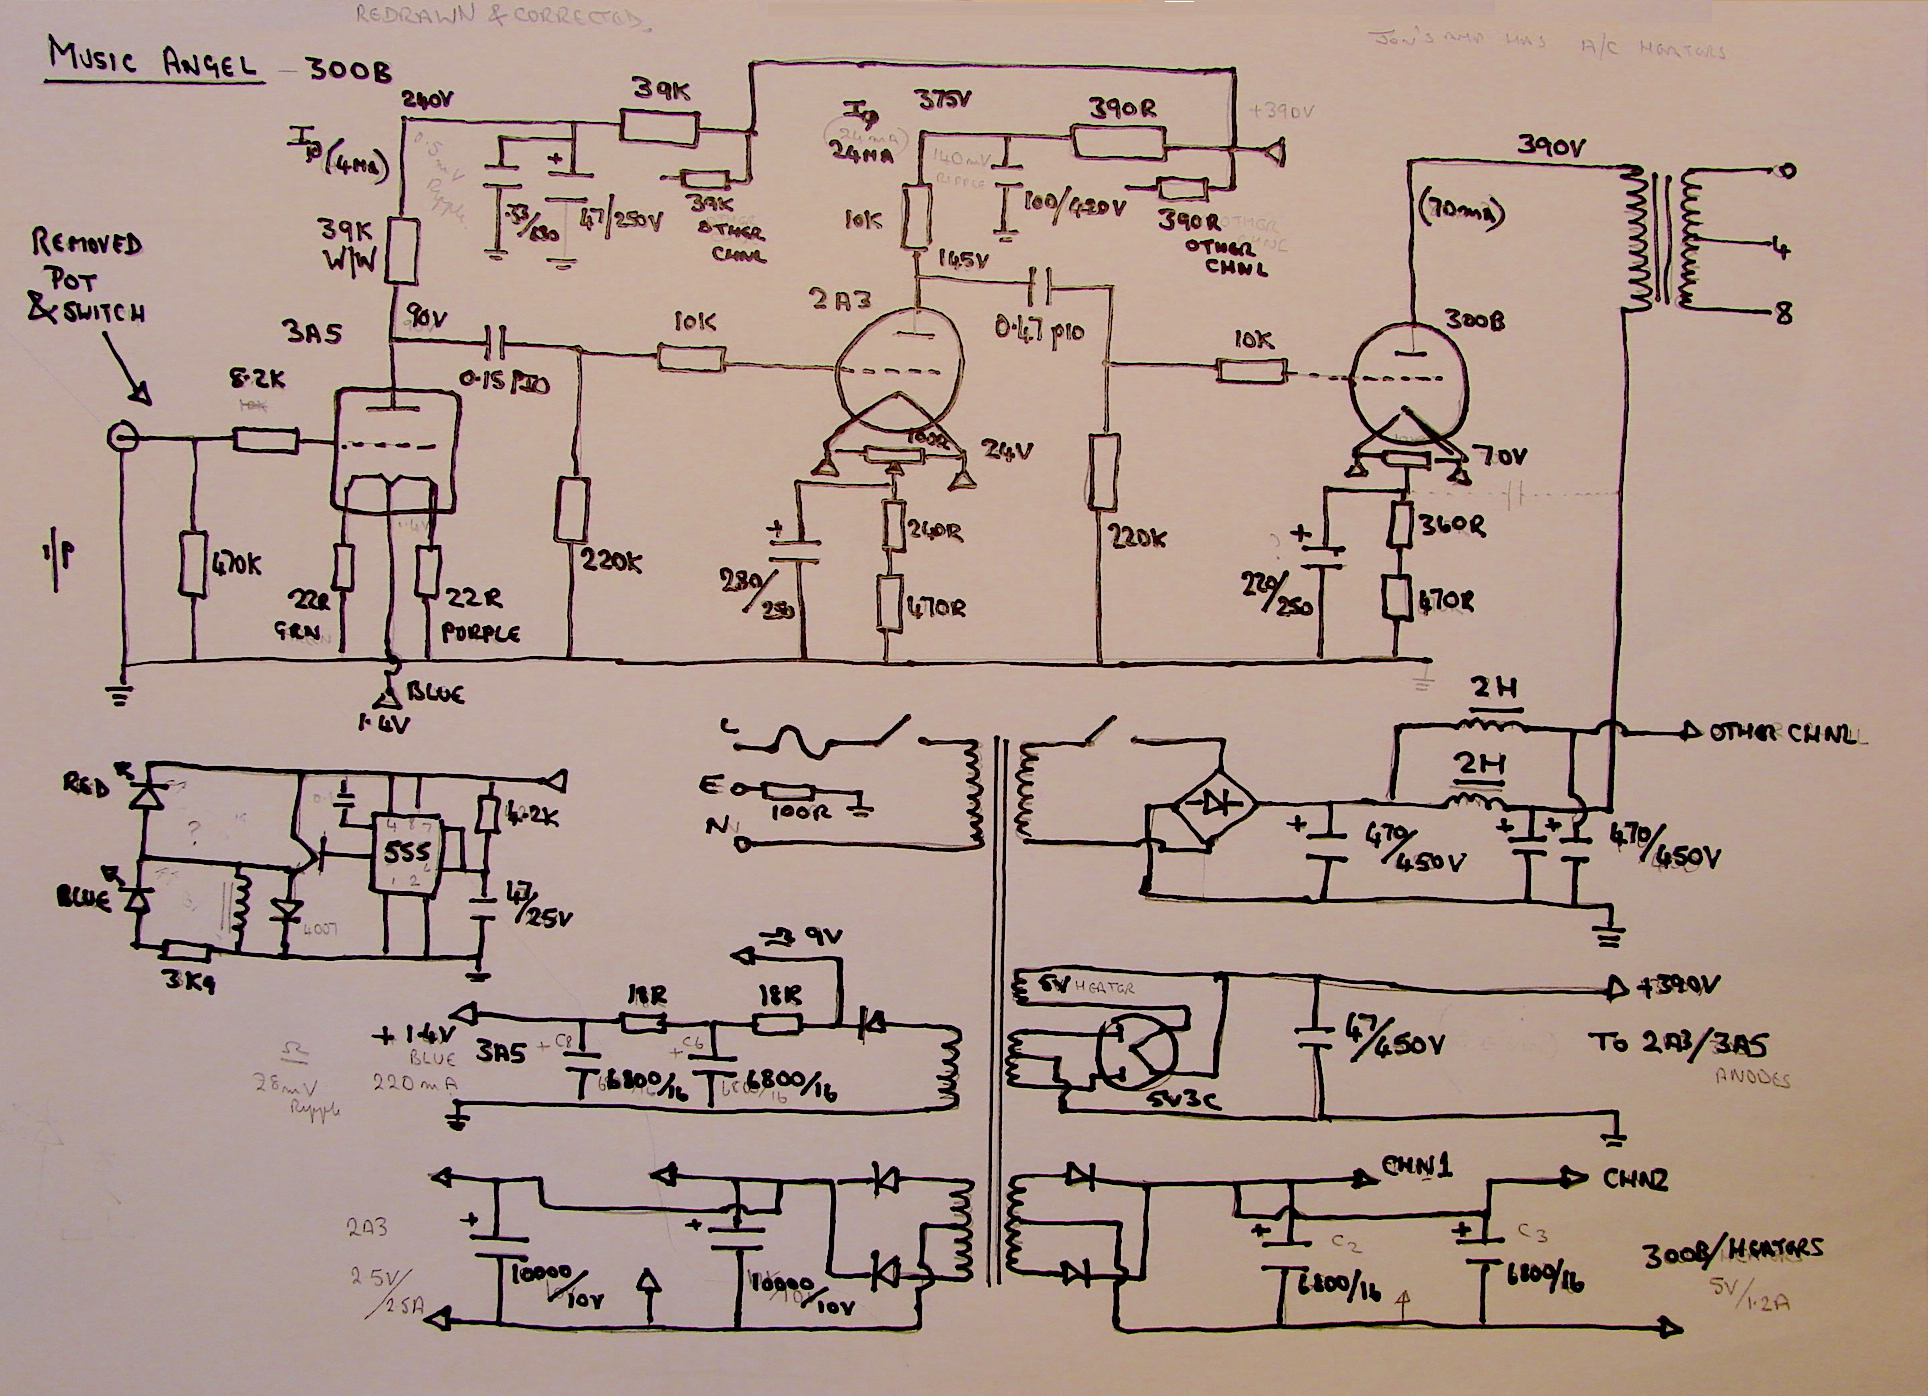 REDRAWN & CORRECTED.
JON'S AMP HAS A/C HEATERS
MUSIC ANGEL - 300B
240V
39K
Ip (4MA)
0.5mV
Ripple
+
.33/
47/250V
39K
OTHER
CHNL
39K
W/W
Ip
(24mA)
24MA
375V
390R
+390V
140mV
RIPPLE
100/420V
390R
OTHER
CHNL
10K
145V
390V
(70mA)
0
4
8
REMOVED
POT
& SWITCH
3A5
90V
0.15 PIO
10K
2A3
0.47 PIO
10K
300B
8.2K
10K
100R
24V
70V
1.4V
I/P
470K
22R
GRN
22R
PURPLE
220K
+
250
240R
470R
220K
?
+
220/250
360R
470R
BLUE
1.4V
L
E
N
100R
2H
2H
OTHER CHNL
+
470/450V
+
+
470/450V
RED
BLUE
?
4 8 7
555
1 2
4.2K
47/25V
4007
3K9
9V
18R
18R
+1.4V
BLUE
220mA
3A5
+ C8
+ C6
6800/16
6800/16
28mV
Ripple
5V HEATER
5V3C
47/450V
+390V
TO 2A3/3A5
ANODES
2A3
2.5V/2.5A
+
10000/10V
+
10000/10V
CHN1
CHN2
+
C2
6800/16
+
C3
6800/16
300B/HEATERS
5V/1.2A